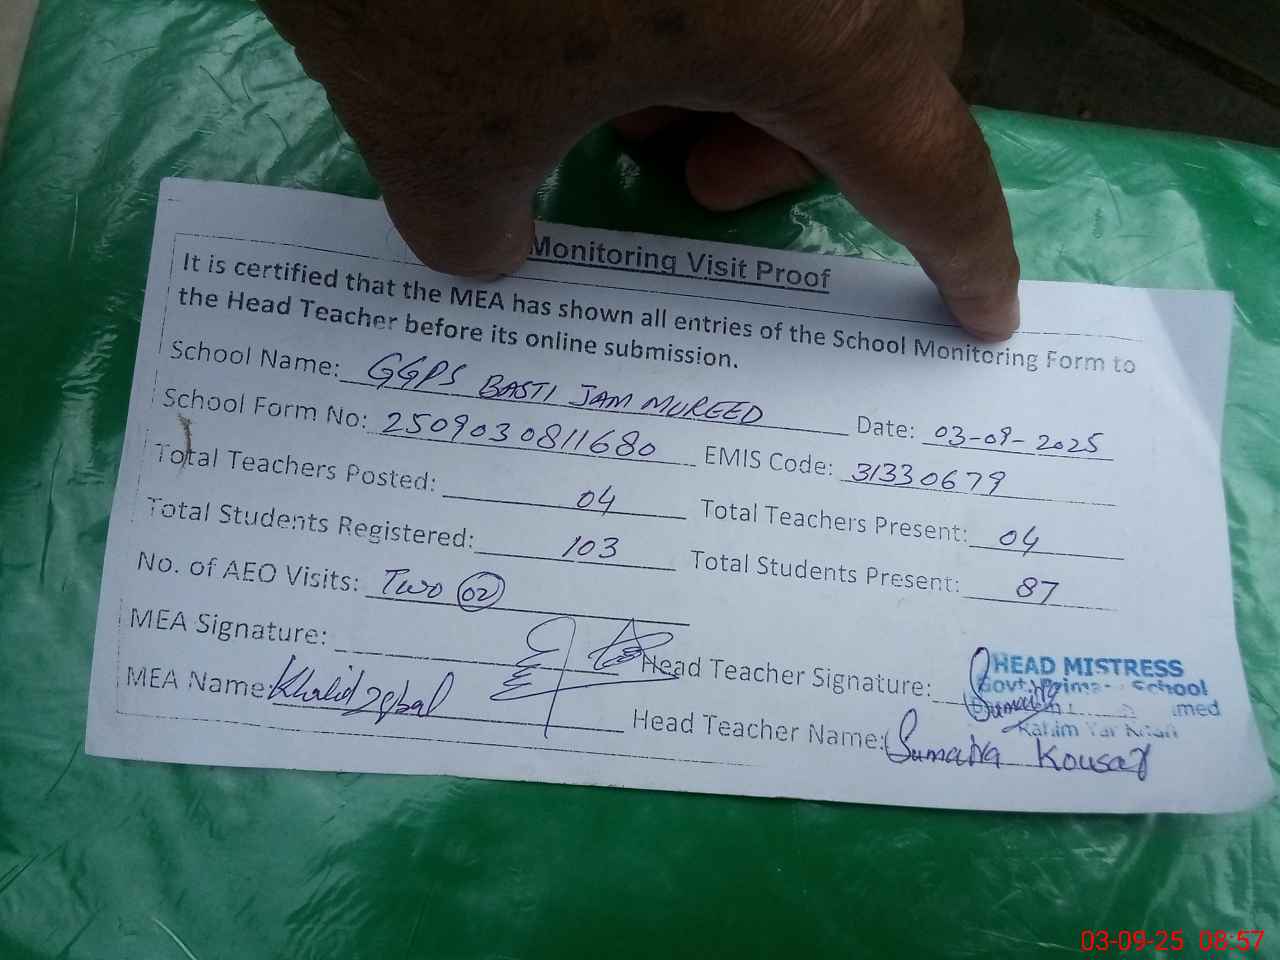 Monitoring Visit Proof
It is certified that the MEA has shown all entries of the School Monitoring Form to
the Head Teacher before its online submission.
School Name: GGPS BASTI JAM MUREED Date: 03-09-2025
School Form No: 2509030811680 EMIS Code: 31330679
Total Teachers Posted: 04 Total Teachers Present: 04
Total Students Registered: 103 Total Students Present: 87
No. of AEO Visits: Two 02
MEA Signature: Head Teacher Signature:
HEAD MISTRESS
Govt. Primary School
Rahim Yar Khan
MEA Name: Khalid Iqbal Head Teacher Name: Sumaira Kousar
03-09-25 08:57